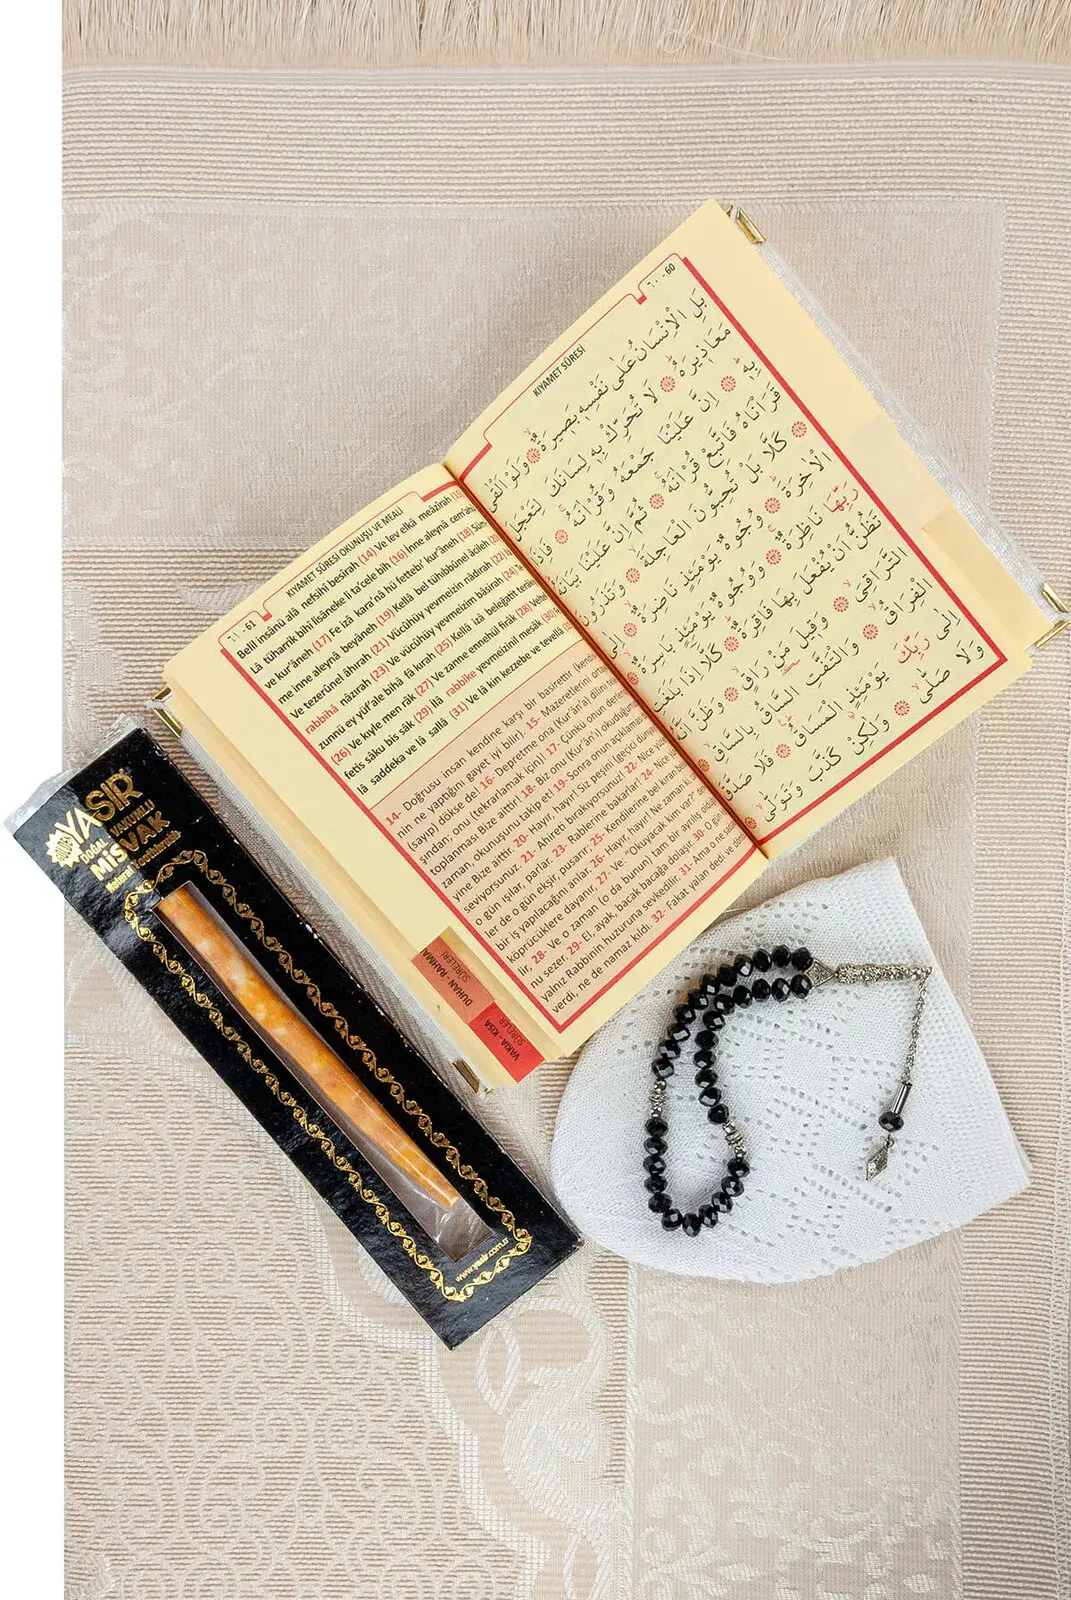 ٦٠ - 60
KIYAMET SÛRESİ
بَلِ الْاِنْسَانُ عَلٰى نَفْسِهٖ بَصٖيرَةٌ وَلَوْ اَلْقٰى
مَعَاذٖيرَهُ لَا تُحَرِّكْ بِهٖ لِسَانَكَ لِتَعْجَلَ
بِهٖ اِنَّ عَلَيْنَا جَمْعَهُ وَقُرْاٰنَهُ فَاِذَا
قَرَاْنَاهُ فَاتَّبِعْ قُرْاٰنَهُ ثُمَّ اِنَّ عَلَيْنَا بَيَانَهُ
كَلَّا بَلْ تُحِبُّونَ الْعَاجِلَةَ وَتَذَرُونَ
الْاٰخِرَةَ وُجُوهٌ يَوْمَئِذٍ نَاضِرَةٌ اِلٰى
رَبِّهَا نَاظِرَةٌ وَوُجُوهٌ يَوْمَئِذٍ بَاسِرَةٌ
تَظُنُّ اَنْ يُفْعَلَ بِهَا فَاقِرَةٌ كَلَّا اِذَا بَلَغَتِ
التَّرَاقِىَ وَقٖيلَ مَنْ رَاقٍ وَظَنَّ اَنَّهُ
الْفِرَاقُ وَالْتَفَّتِ السَّاقُ بِالسَّاقِ
اِلٰى رَبِّكَ يَوْمَئِذٍ الْمَسَاقُ فَلَا صَدَّقَ
وَلَا صَلّٰى وَلٰكِنْ كَذَّبَ وَتَوَلّٰى
٦١ - 61
KIYAMET SÛRESİ OKUNUŞU VE MEALİ
Belil insânü alâ nefsihî besîrah (14) Ve lev elkâ meâzîrah (15)
Lâ tüharrik bihî lisâneke li ta'cele bih (16) İnne aleynâ cem'ahû
ve kur'âneh (17) Fe izâ kara'nâ hü fettebi' kur'âneh (18) Süm
me inne aleynâ beyâneh (19) Kellâ bel tühıbbûnel âcileh (20)
Ve tezerûnel âhırah (21) Vücûhüy yevmeizin nâdırah (22) İlâ
rabbihâ nâzırah (23) Ve vücûhüy yevmeizim bâsirah (24) Te
zunnü ey yüf'ale bihâ fâ kırah (25) Kellâ izâ beleğatit terâkî
(26) Ve kıyle men râk (27) Ve zanne ennehül firâk (28) Velte
fetis sâku bis sâk (29) İlâ rabbike yevmeizinil mesâk (30) Fe lâ
saddeka ve lâ sallâ (31) Ve lâ kin kezzebe ve tevellâ
14- Doğrusu insan kendine karşı bir basirettir (kendi
nin ne yaptığını gayet iyi bilir). 15- Mazeretlerini orta
(sayıp) dökse de! 16- Depretme ona (Kur'ân'a) dilini
şından: onu (tekrarlamak için)! 17- Çünkü onun der
toplanması Bize aittir! 18- Biz onu (Kur'ân'ı) okuduğumuz
zaman, okunuşunu takip et! 19- Sonra onun açıklaması
yine Bize aittir. 20- Hayır, hayır! Siz peşini (geçici dünyayı)
seviyorsunuz. 21- Ahireti bırakıyorsunuz! 22- Nice
o gün ışılar, parlar. 23- Rablerine bakarlar! 24- Nice
ler de o gün ekşir, pusarır. 25- Kendilerine bel kıran
bir iş yapılacağını anlar. 26- Hayır, hayır! Ne zaman ki
köprücüklere dayanır. 27- Ve: "Okuyacak kim var?"
lir, 28- Ve o zaman (o da bunun) tam bir ayrılış olduğu
nu sezer. 29- El, ayak, bacak bacağa dolaşır. 30- O gün
yalnız Rabbinin huzuruna sevkedilir. 31- Ama o ne sada
verdi, ne de namaz kıldı. 32- Fakat yalan dedi ve dö
DUHAN - RAHMAN
SÛRELERİ
VAKIA - KISA
SÛRELER
YASİR
DOĞAL VAKUMLU
MİSVAK
Natural Toothbrush
www.yasir.com.tr